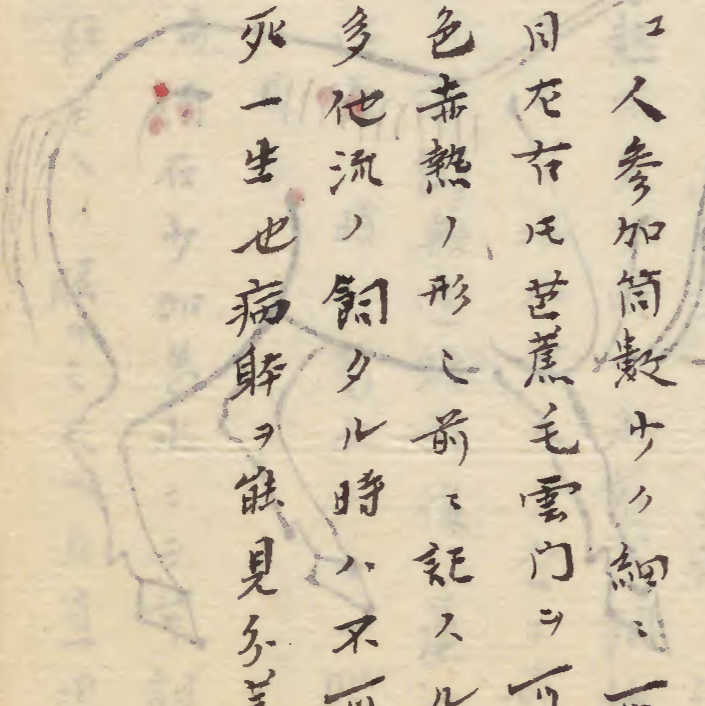 エ人参加筒數少ク細ニ可
目左右氏芭蕉毛雲门ニ可
色赤熱ノ形ニ前ニ記スル
多他流ノ飼タル時ハ不可
死一生也病躰ヲ能見分